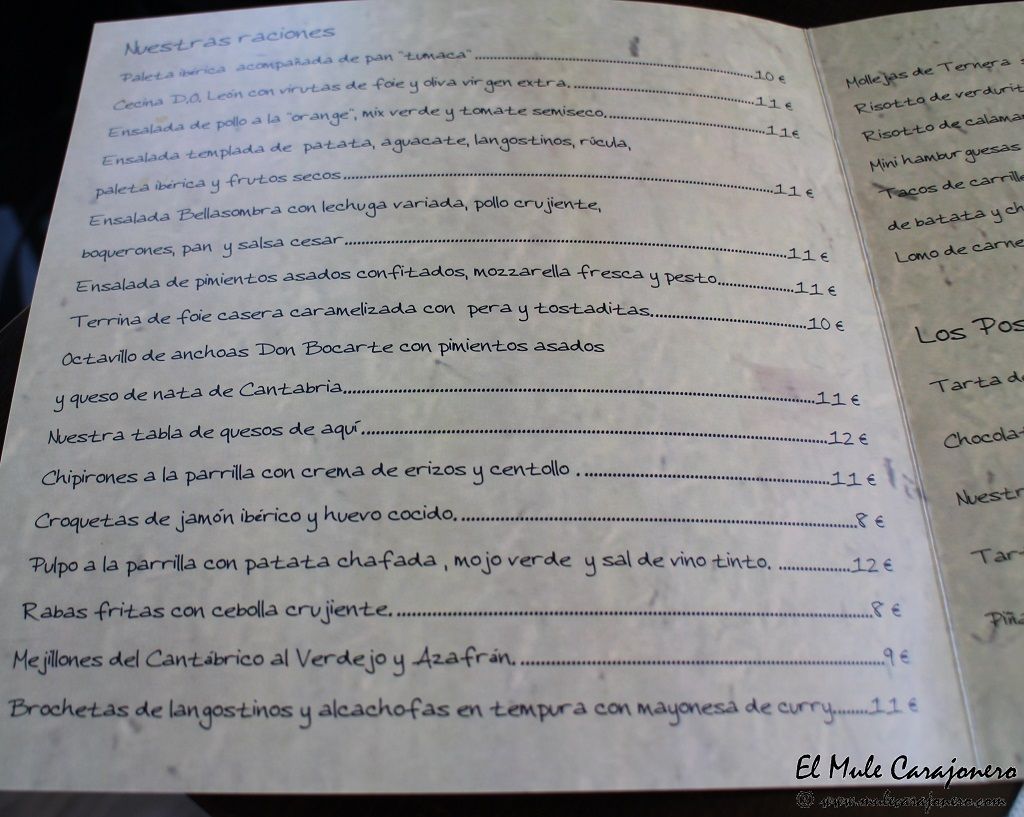 Nuestras raciones
Paleta ibérica acompañada de pan "tumaca"......10 €
Cecina D.O. León con virutas de foie y oliva virgen extra.......11 €
Ensalada de pollo a la "orange", mix verde y tomate semiseco.......11€
Ensalada templada de patata, aguacate, langostinos, rúcula,
paleta ibérica y frutos secos......11 €
Ensalada Bellasombra con lechuga variada, pollo crujiente,
boquerones, pan y salsa cesar......11 €
Ensalada de pimientos asados confitados, mozzarella fresca y pesto......11 €
Terrina de foie casera caramelizada con pera y tostaditas......10 €
Octavillo de anchoas Don Bocarte con pimientos asados
y queso de nata de Cantabria......11 €
Nuestra tabla de quesos de aquí......12 €
Chipirones a la parrilla con crema de erizos y centollo ......11 €
Croquetas de jamón ibérico y huevo cocido.......8 €
Pulpo a la parrilla con patata chafada , mojo verde y sal de vino tinto. ......12 €
Rabas fritas con cebolla crujiente.......8 €
Mejillones del Cantábrico al Verdejo y Azafrán.......9 €
Brochetas de langostinos y alcachofas en tempura con mayonesa de curry......11 €
Mollejas de Ternera
Risotto de verdurit
Risotto de calamar
Mini hamburguesas
Tacos de carrille
de batata y ch
Lomo de carne
Los Pos
Tarta de
Chocolat
Nuestr
Tar
Piña
El Mule Carajonero
© www.mulecarajonero.com